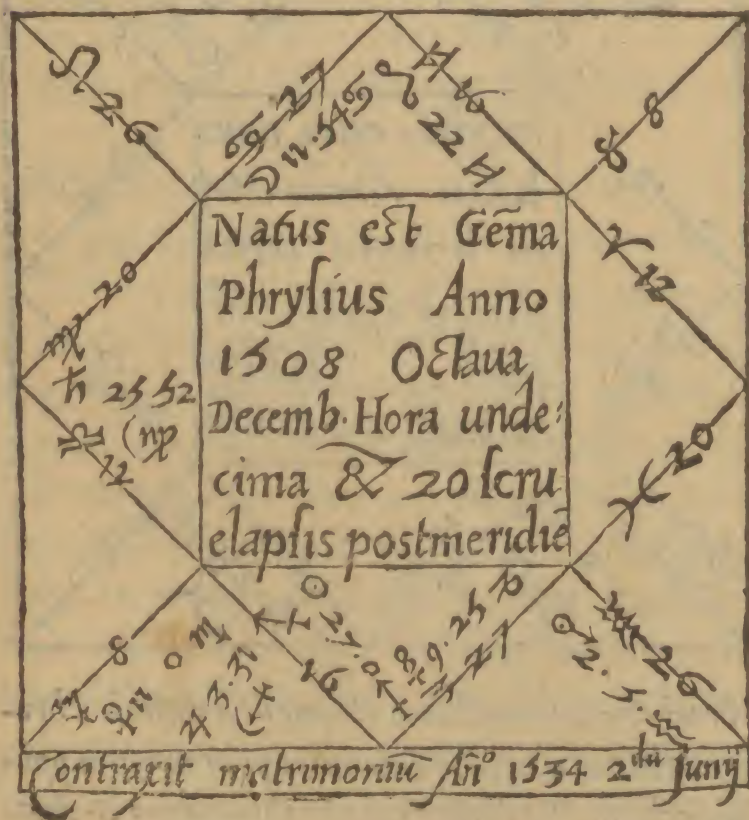 ♌ 26
♋ 27
☽ 11.54 ♋
♓ 22 ♊
♊ 16
♉ 8
♈ 12
♍ 20
♄ 25 52
(♍
♎ 12
Natus est Gem̄a
Phrysius Anno
1508 Octaua
Decemb. Hora unde:
cima & 20 scru
elapsis postmeridiē
♓ 20
♏ 8
♀ 11 0 ♏
♃ 3.31
(♐
♐ 16
☉ 27.0 ♐
☿ 9.25 ♑
♑ 27
♂ 2.5. ♒
♒ 26
Contraxit matrimoniū An̄o 1534 2 die Junij